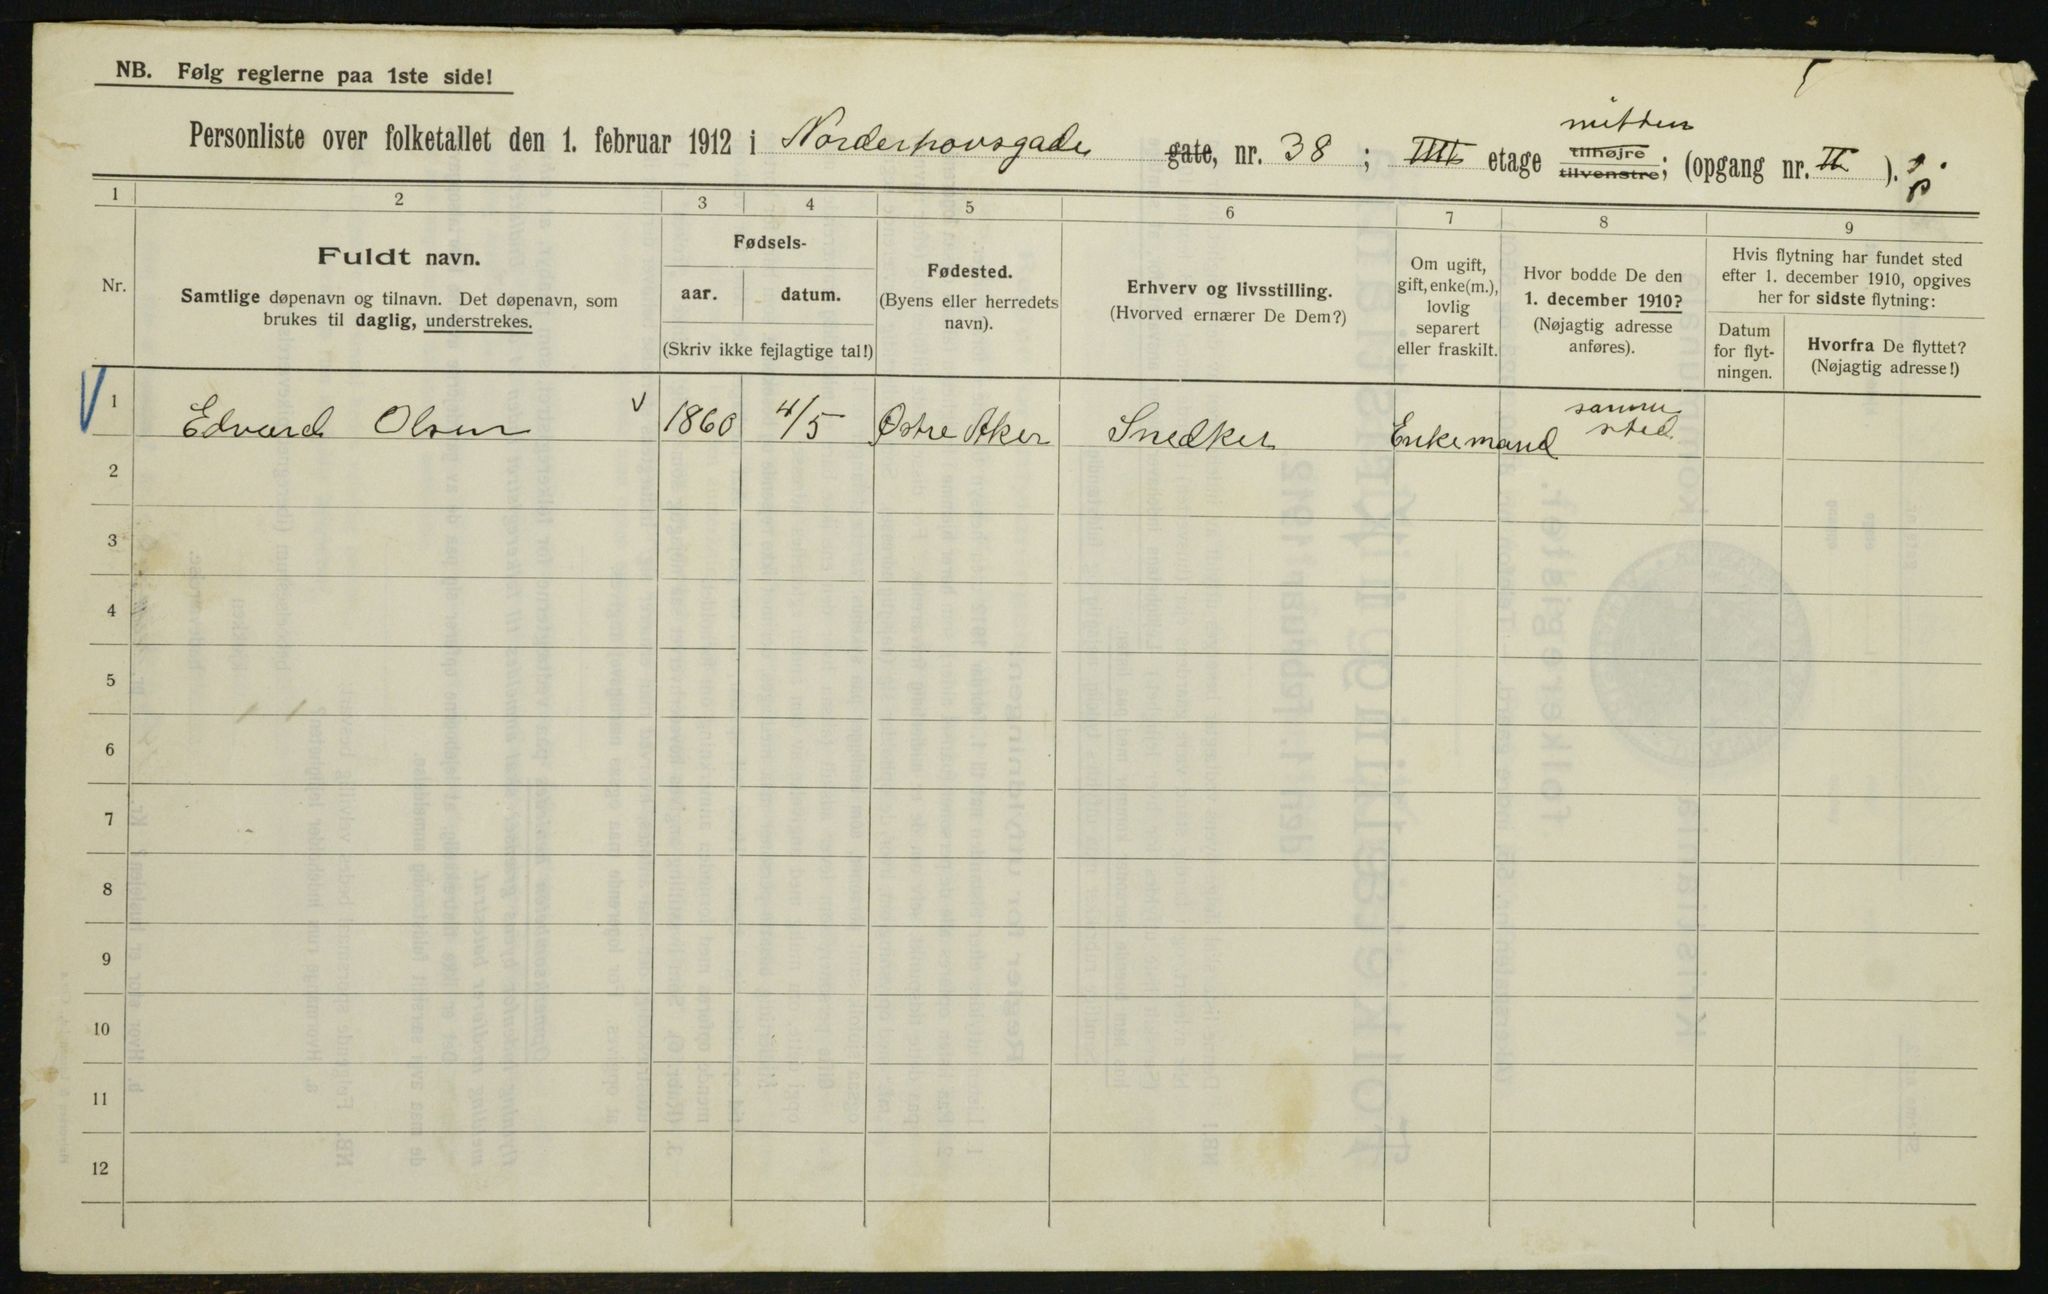 NB. Følg reglerne paa 1ste side!
mitten
Personliste over folketallet den 1. februar 1912 i Norderhovsgade gate, nr. 38; IIII etage tilhøjre tilvenstre; (opgang nr. II ).
1 2 3 4 5 6 7 8 9
Nr.
Fuldt navn.
Samtlige døpenavn og tilnavn. Det døpenavn, som
brukes til daglig, understrekes.
Fødsels-
aar. datum.
(Skriv ikke fejlagtige tal!)
Fødested.
(Byens eller herredets
navn).
Erhverv og livsstilling.
(Hvorved ernærer De Dem?)
Om ugift,
gift, enke(m.),
lovlig
separert
eller fraskilt.
Hvor bodde De den
1. december 1910?
(Nøjagtig adresse
anføres).
Hvis flytning har fundet sted
efter 1. december 1910, opgives
her for sidste flytning:
Datum
for flyt-
ningen.
Hvorfra De flyttet?
(Nøjagtig adresse!)
1 Edvard Olsen v 1860 4/5 Østre Aker Snedker Enkemand samme
sted
2
3
4
5
6
7
8
9
10
11
12